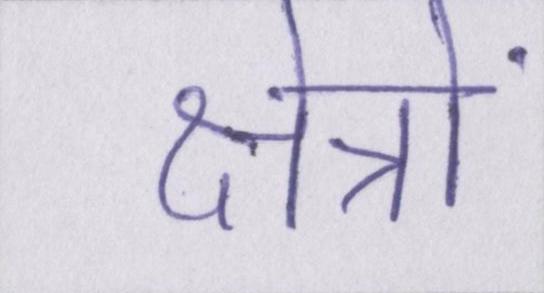 क्षेत्रों